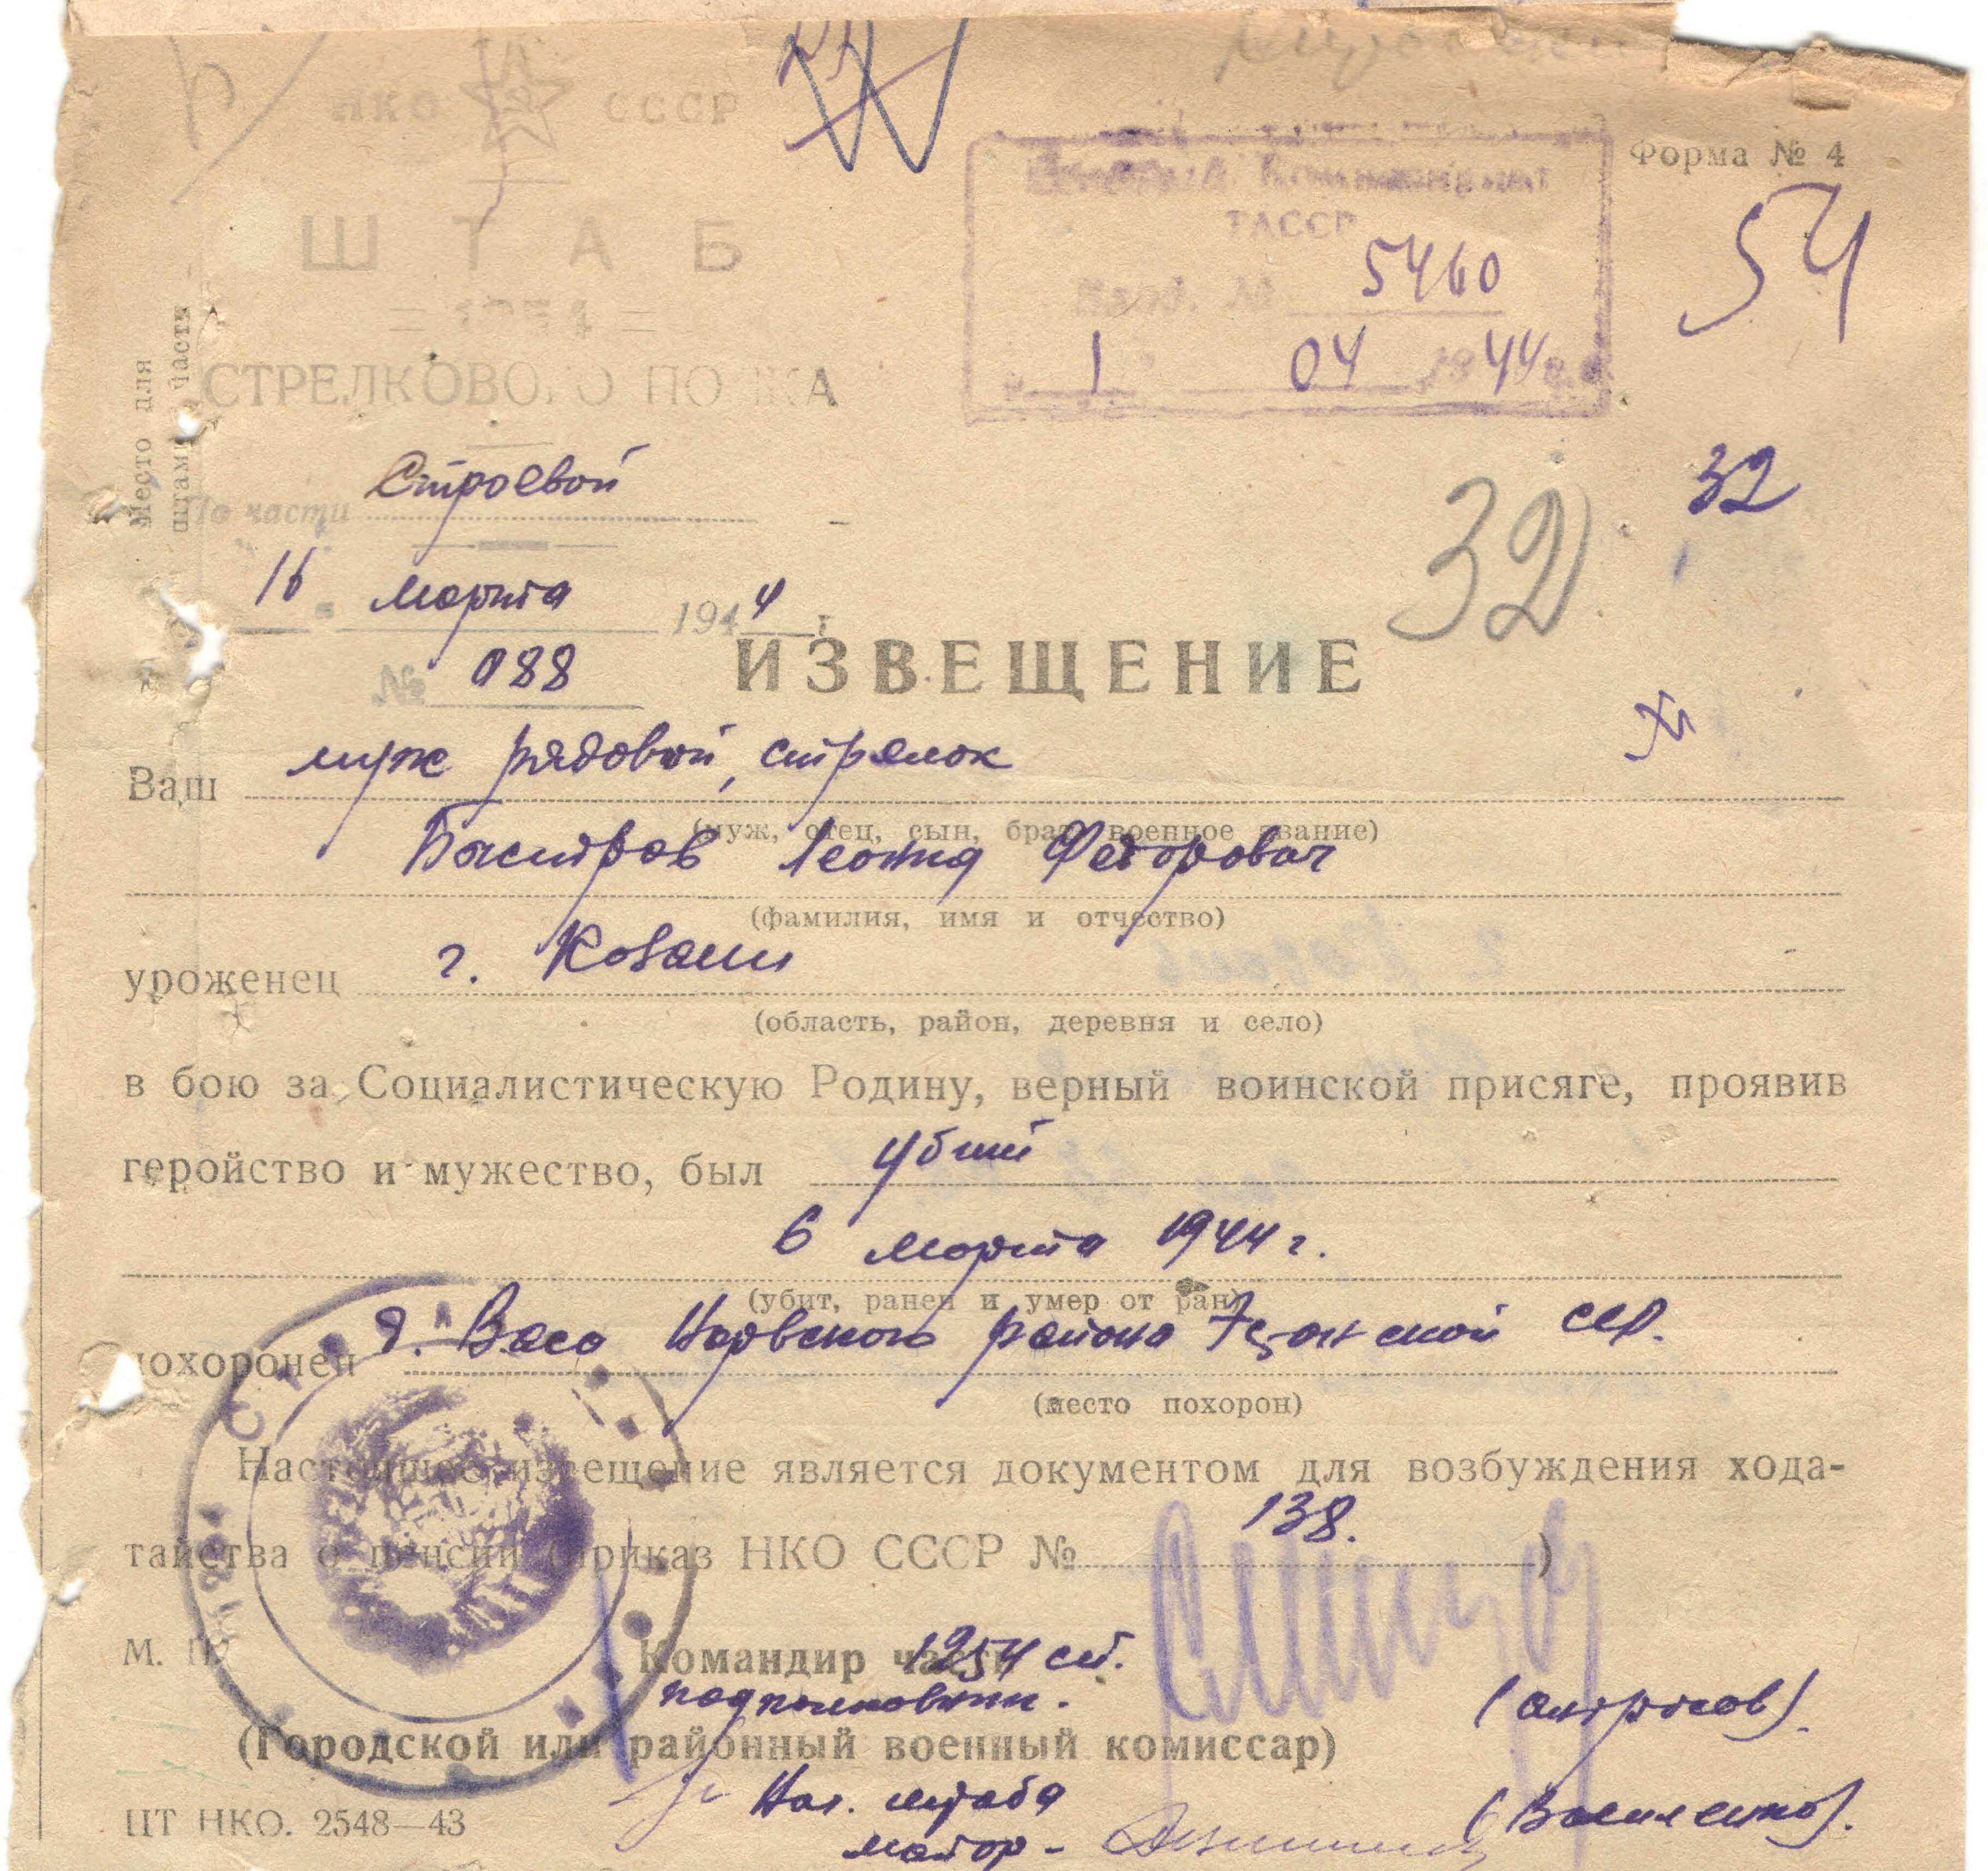 НКО СССР
Форма № 4
ШТАБ
ТАССР
Вход. № 5460
= 1254 =
1 04 1944 г.
54
СТРЕЛКОВОГО ПОЛКА
Место для
штампа части
По части Строевой
32
32
16 " марта 1944 г.
№ 088
ИЗВЕЩЕНИЕ
Ваш муж рядовой, стрелок
(муж, отец, сын, брат, военное звание)
Быстров Леонид Федорович
(фамилия, имя и отчество)
уроженец г. Казани
(область, район, деревня и село)
в бою за Социалистическую Родину, верный воинской присяге, проявив
геройство и мужество, был убит
6 марта 1944 г.
(убит, ранен и умер от ран)
похоронен д. Васа Нарвского района Эстонской ССР.
(место похорон)
Настоящее извещение является документом для возбуждения хода-
тайства о пенсии (приказ НКО СССР № 138. )
М. П.
Командир части 1254 сп.
подполковник.
(Городской или районный военный комиссар)
Нач. штаба
(Василенко).
майор -
ЦТ НКО. 2548—43